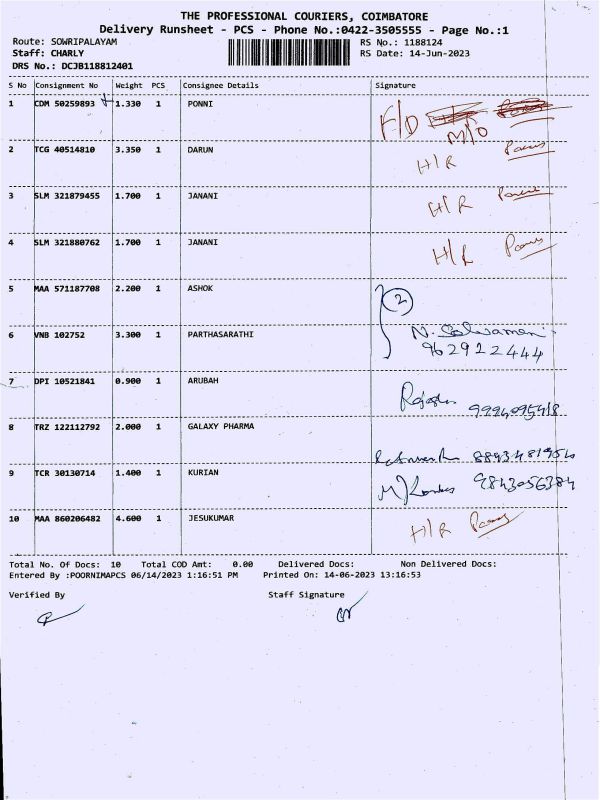 THE PROFESSIONAL COURIERS, COIMBATORE
Delivery Runsheet - PCS - Phone No.:0422-3505555 - Page No.:1
Route: SOWRIPALAYAM RS No.: 1188124
Staff: CHARLY RS Date: 14-Jun-2023
DRS No.: DCJB118812401
S No Consignment No Weight PCS Consignee Details Signature
1 CDM 50259893 1.330 1 PONNI F/D M/O
2 TCG 40514810 3.350 1 DARUN H/R
3 SLM 321879455 1.700 1 JANANI H/R
4 SLM 321880762 1.700 1 JANANI H/R
5 MAA 571187708 2.200 1 ASHOK 2
6 VNB 102752 3.300 1 PARTHASARATHI N.
9629122444
7 DPI 10521841 0.900 1 ARUBAH
8 TRZ 122112792 2.000 1 GALAXY PHARMA
9 TCR 30130714 1.400 1 KURIAN 9843056384
10 MAA 860206482 4.600 1 JESUKUMAR H/R
Total No. Of Docs: 10 Total COD Amt: 0.00 Delivered Docs: Non Delivered Docs:
Entered By :POORNIMAPCS 06/14/2023 1:16:51 PM Printed On: 14-06-2023 13:16:53
Verified By Staff Signature